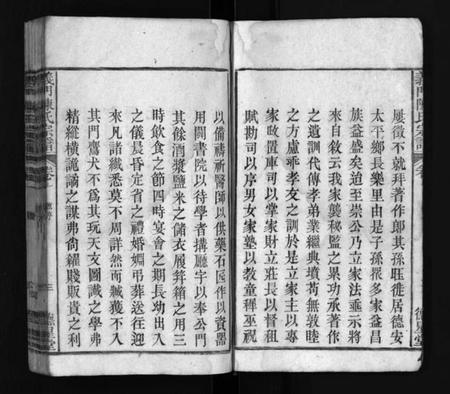 屢徵不就拜著作郎其孫旺徙居德安
太平鄉長樂里由是子孫眾多家益昌
族益盛矣迨至崇公乃立家法垂示將
來自敘云我家襲秘監之累功承著作
之遺訓代傳孝弟業繼典墳苟無敦睦
之方慮乖孝友之訓於是立家主以專
家政置庫司以掌家財立莊長以督租
賦勘司以序男女家塾以教童稺巫祝
以備禱祈醫師以供藥石區作以資器
用開書院以待學者搆廳宇以奉公門
其餘酒漿鹽米之儲衣履笄箱之用三
時飲食之節四時宴會之期長幼出入
之儀晨昏定省之禮婚媾弔葬送往迎
來凡諸織悉莫不周詳然而緘獲不入
其門齎犬不爲其玩天文圖讖之學弗
精縱橫詭譎之謀弗尚糴賤販貴之利
義門陳氏宗譜
三
義門陳氏宗譜